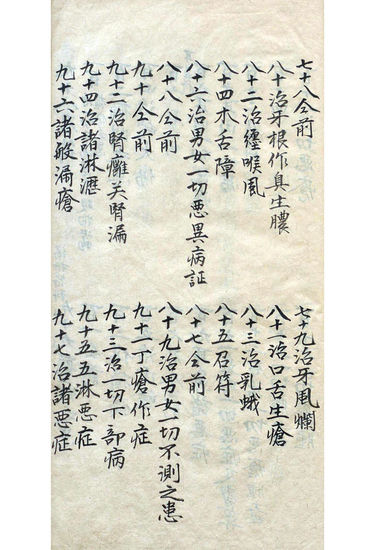 七十八仝前
七十九治牙風爛
八十治牙根作臭生膿
八十一治口舌生瘡
八十二治纏喉風
八十三治乳蛾
八十四木舌障
八十五召符
八十六治男女一切悪異病証
八十七仝前
八十八仝前
八十九治男女一切不測之患
九十仝前
九十一丁瘡作症
九十二治腎癰关腎漏
九十三治一切下部病
九十四治諸淋瀝
九十五五淋悪症
九十六諸般漏瘡
九十七治諸悪症